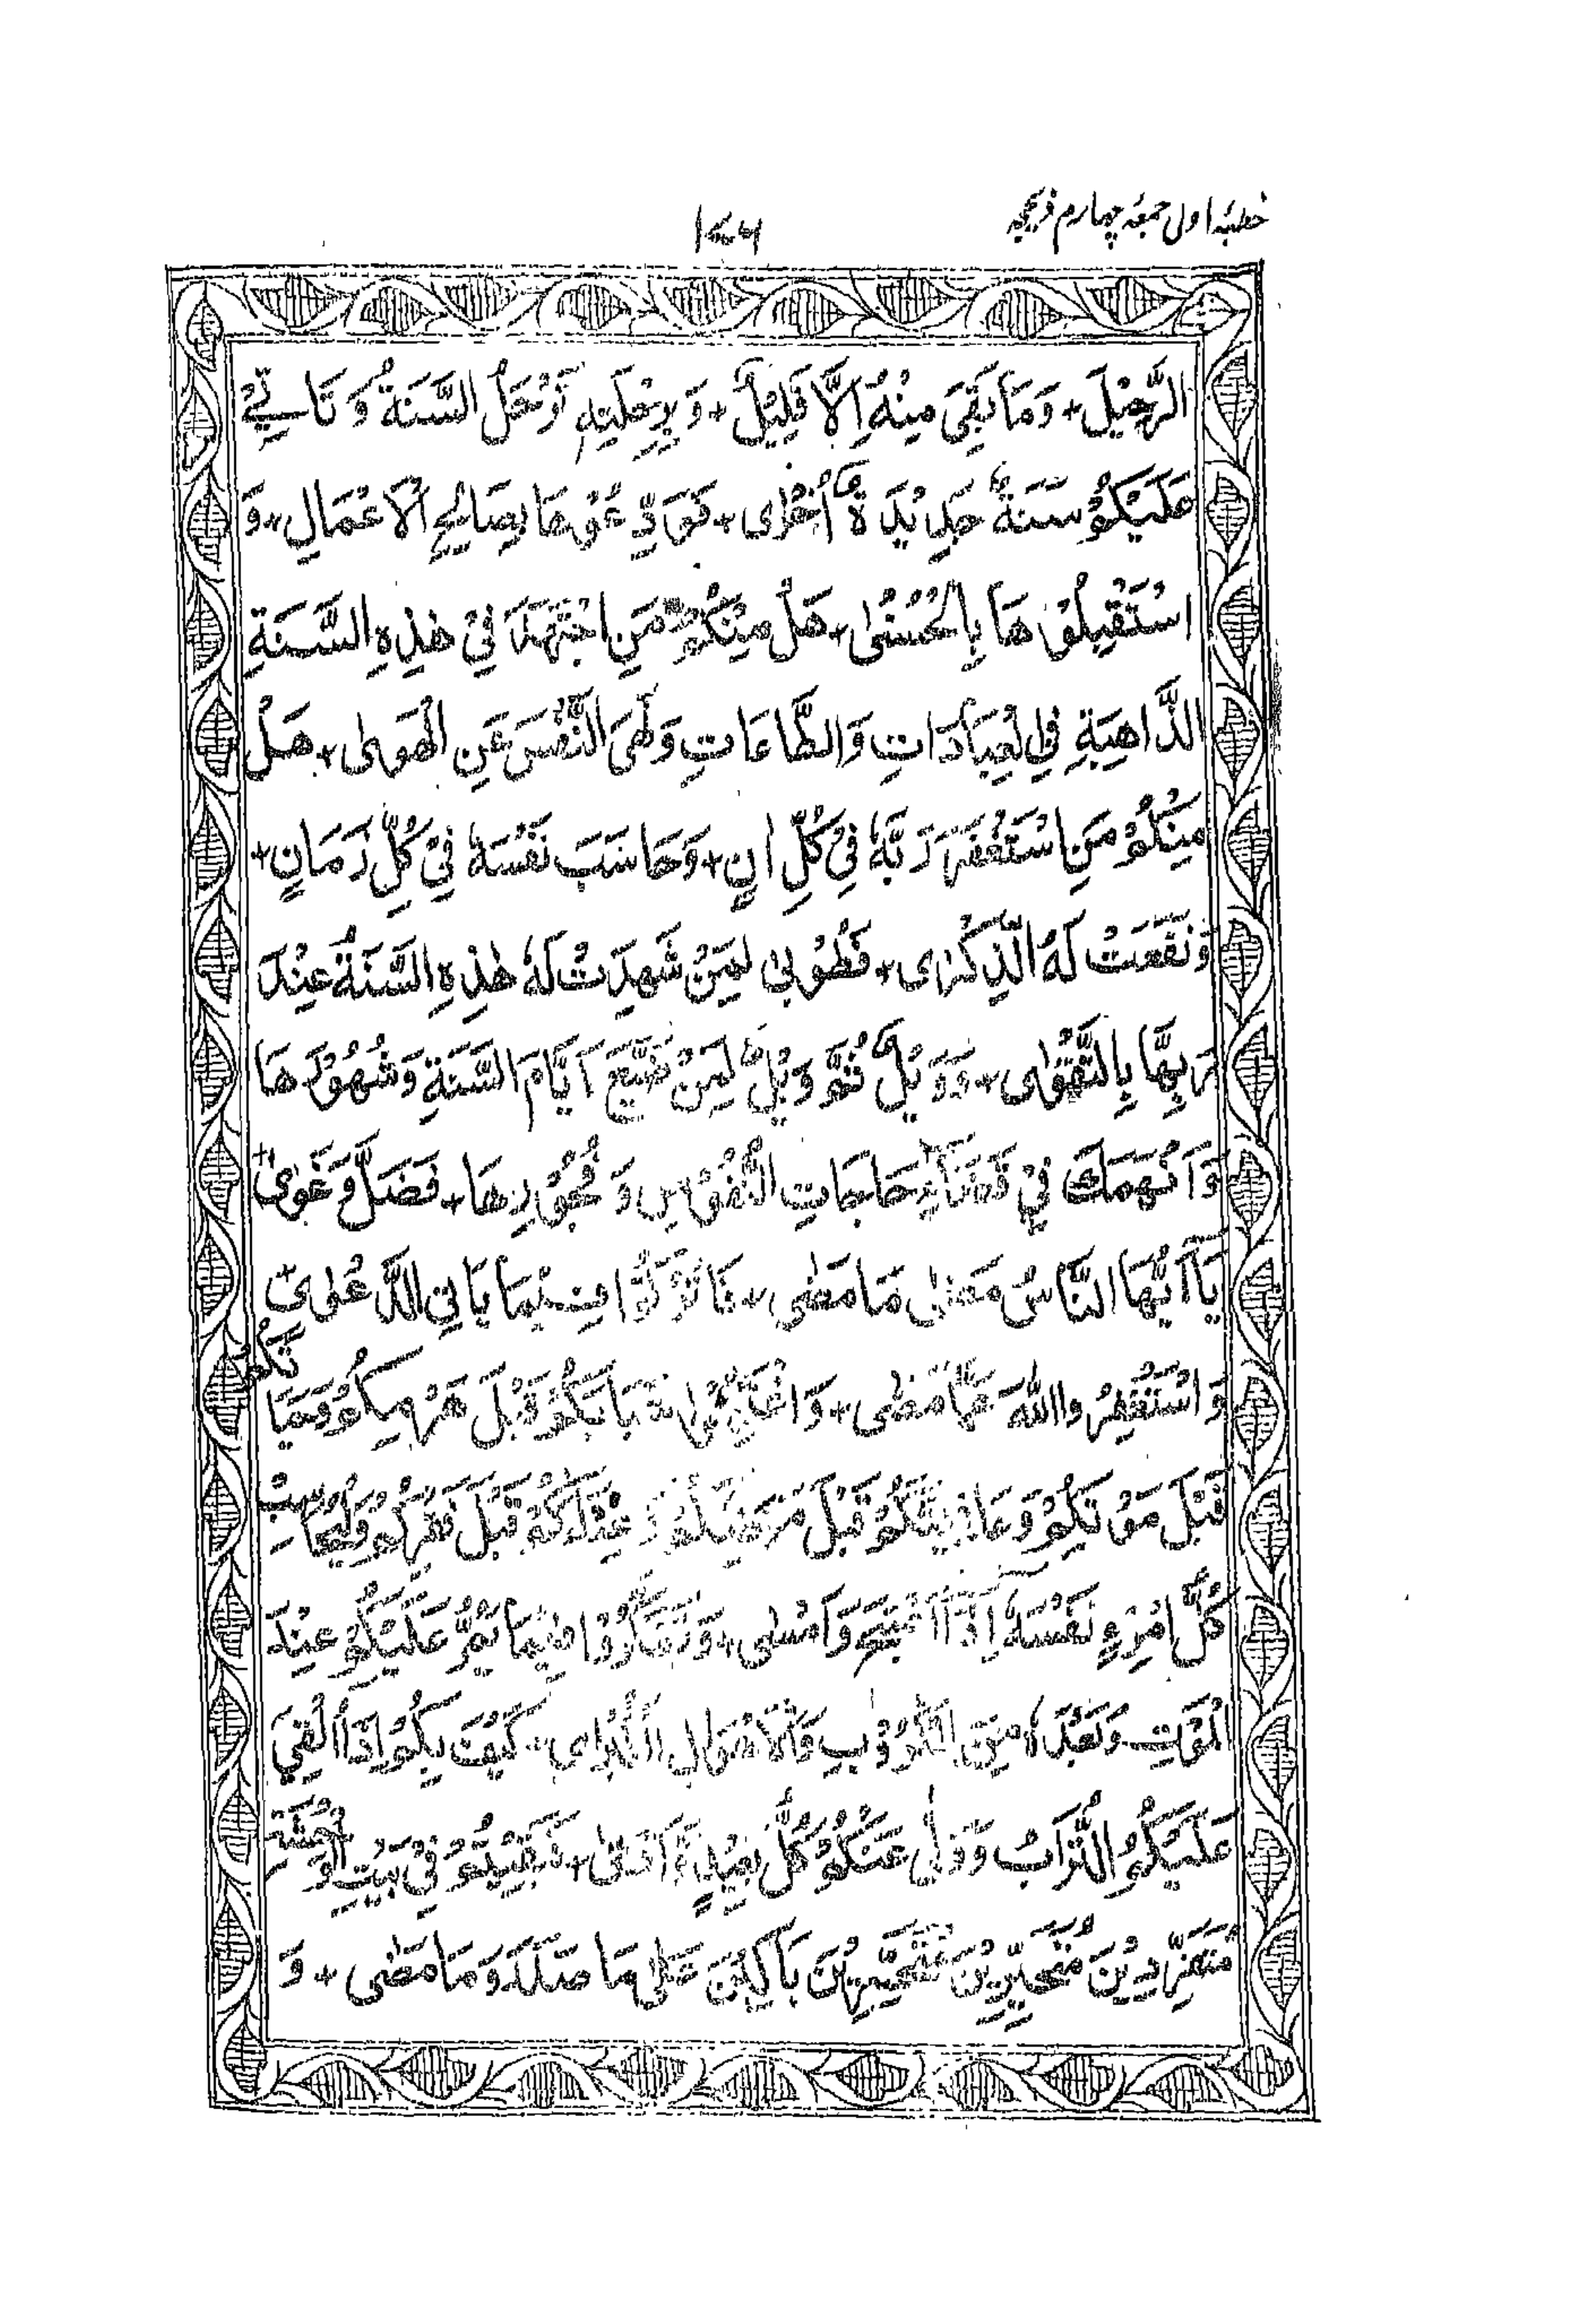 خطبۂ اولی جمعۂ چہارم ذیحجہ
۱۷۶
الرَّحِيْلَ + وَمَا بَقِيَ مِنْهُ اِلَّا قَلِيْلٌ + وَ بِرِحْلَتِهٖ تَرْحَلُ السَّنَةُ وَ تَاْتِيْ
عَلَيْكُمْ سَنَةٌ جَدِيْدَةٌ اُخْرٰى + فَوَدِّعُوْهَا بِصَالِحِ الْاَعْمَالِ + وَ
اسْتَقْبِلُوْهَا بِالْحُسْنٰى + هَلْ مِنْكُمْ مَنِ اجْتَهَدَ فِيْ هٰذِهِ السَّنَةِ
الذَّاهِبَةِ فِي الْعِبَادَاتِ وَالطَّاعَاتِ وَنَهَى النَّفْسَ عَنِ الْهَوٰى + هَلْ
مِنْكُمْ مَنِ اسْتَغْفَرَ رَبَّهٗ فِيْ كُلِّ اٰنٍ + وَحَاسَبَ نَفْسَهٗ فِيْ كُلِّ زَمَانٍ +
وَنَفَعَتْ لَهُ الذِّكْرٰى + فَطُوْبٰى لِمَنْ شَهِدَتْ لَهٗ هٰذِهِ السَّنَةُ عِنْدَ
رَبِّهَا بِالتَّقْوٰى + وَوَيْلٌ ثُمَّ وَيْلٌ لِمَنْ ضَيَّعَ اَيَّامَ السَّنَةِ وَشُهُوْرَهَا
وَانْهَمَكَ فِيْ قَضَاءِ حَاجَاتِ النُّفُوْسِ وَ فُجُوْرِهَا + فَضَلَّ وَغَوٰى +
يَا اَيُّهَا النَّاسُ مَضٰى مَا مَضٰى + فَانْظُرُوْا فِيْمَا يَاْتِي
وَ اسْتَغْفِرُوا اللهَ عَمَّا مَضٰى + وَ اغْتَنِمُوْا شَبَابَكُمْ قَبْلَ هَرَمِكُمْ وَحَيَاتَكُمْ
قَبْلَ مَوْتِكُمْ وَعَافِيَتَكُمْ قَبْلَ مَرَضِكُمْ وَ غِنَاكُمْ قَبْلَ فَقْرِكُمْ وَلْيُحَاسِبْ
كُلُّ امْرِءٍ نَفْسَهٗ اِذَا اَصْبَحَ وَاَمْسٰى + وَتَفَكَّرُوْا فِيْمَا يَمُرُّ عَلَيْكُمْ عِنْدَ
الْمَوْتِ وَبَعْدَهٗ مِنَ الْكُرُوْبِ وَالْاَهْوَالِ الْكُبْرٰى + كَيْفَ بِكُمْ اِذَا اُلْقِيَ
عَلَيْكُمُ التُّرَابُ وَ عَنْكُمْ كُلُّ بَعِيْدٍ وَّ اَدْنٰى + فَبَقِيْتُمْ فِيْ بَيْتِ الْوَحْشَةِ
مُنْفَرِدِيْنَ مُتَحَيِّرِيْنَ مُتَحَسِّرِيْنَ بَاكِيْنَ عَلٰى مَا صَدَرَ وَمَا مَضٰى + وَ